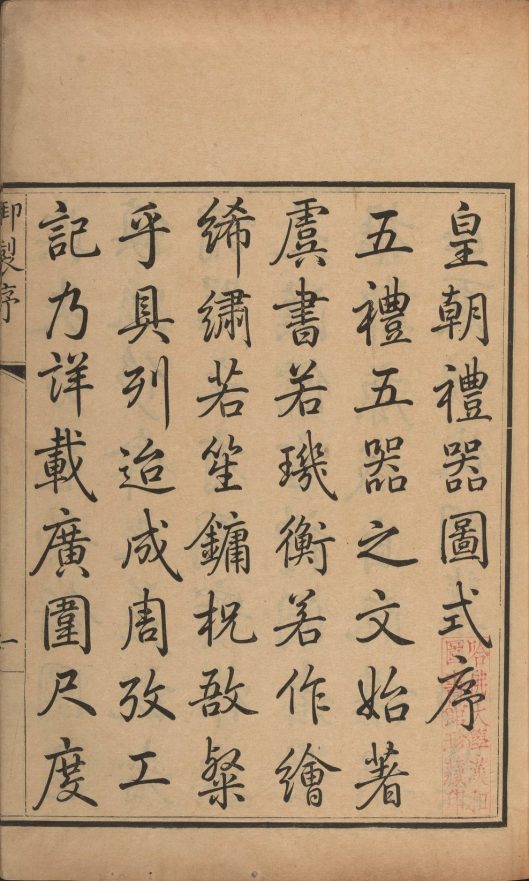 皇朝禮器圖式序
五禮五器之文始著
虞書若璣衡若作繪
絺繡若笙鏞柷敔粲
乎具列迨成周攷工
記乃詳載廣圍尺度
御製序
一
哈佛大學漢和
圖書館珍藏印